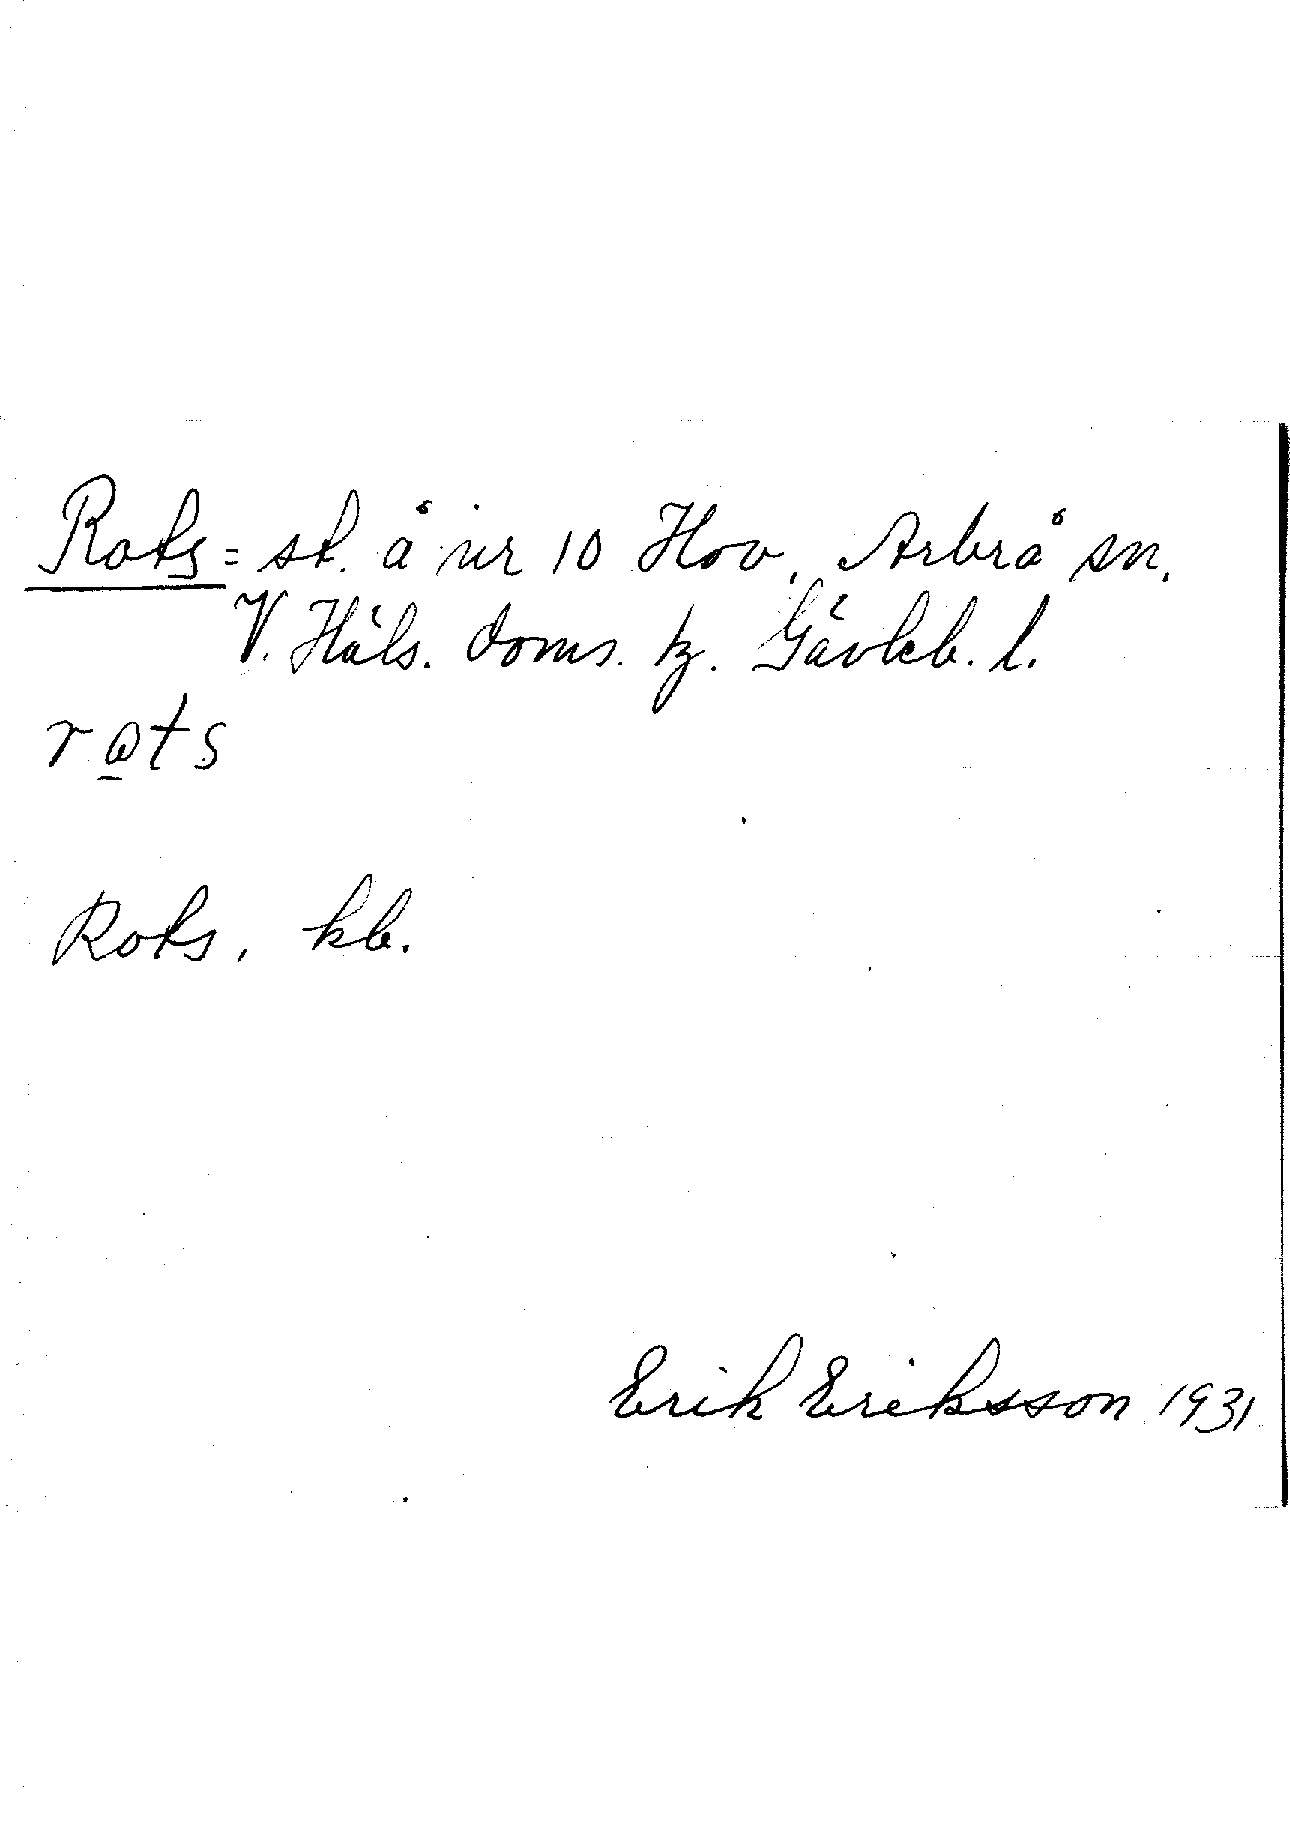 Rots = st. å nr 10 Hov, Arbrå sn.
V. Häls. doms. tz. Gävleb. l.
rots
Rots, kb.
Erik Eriksson 1931